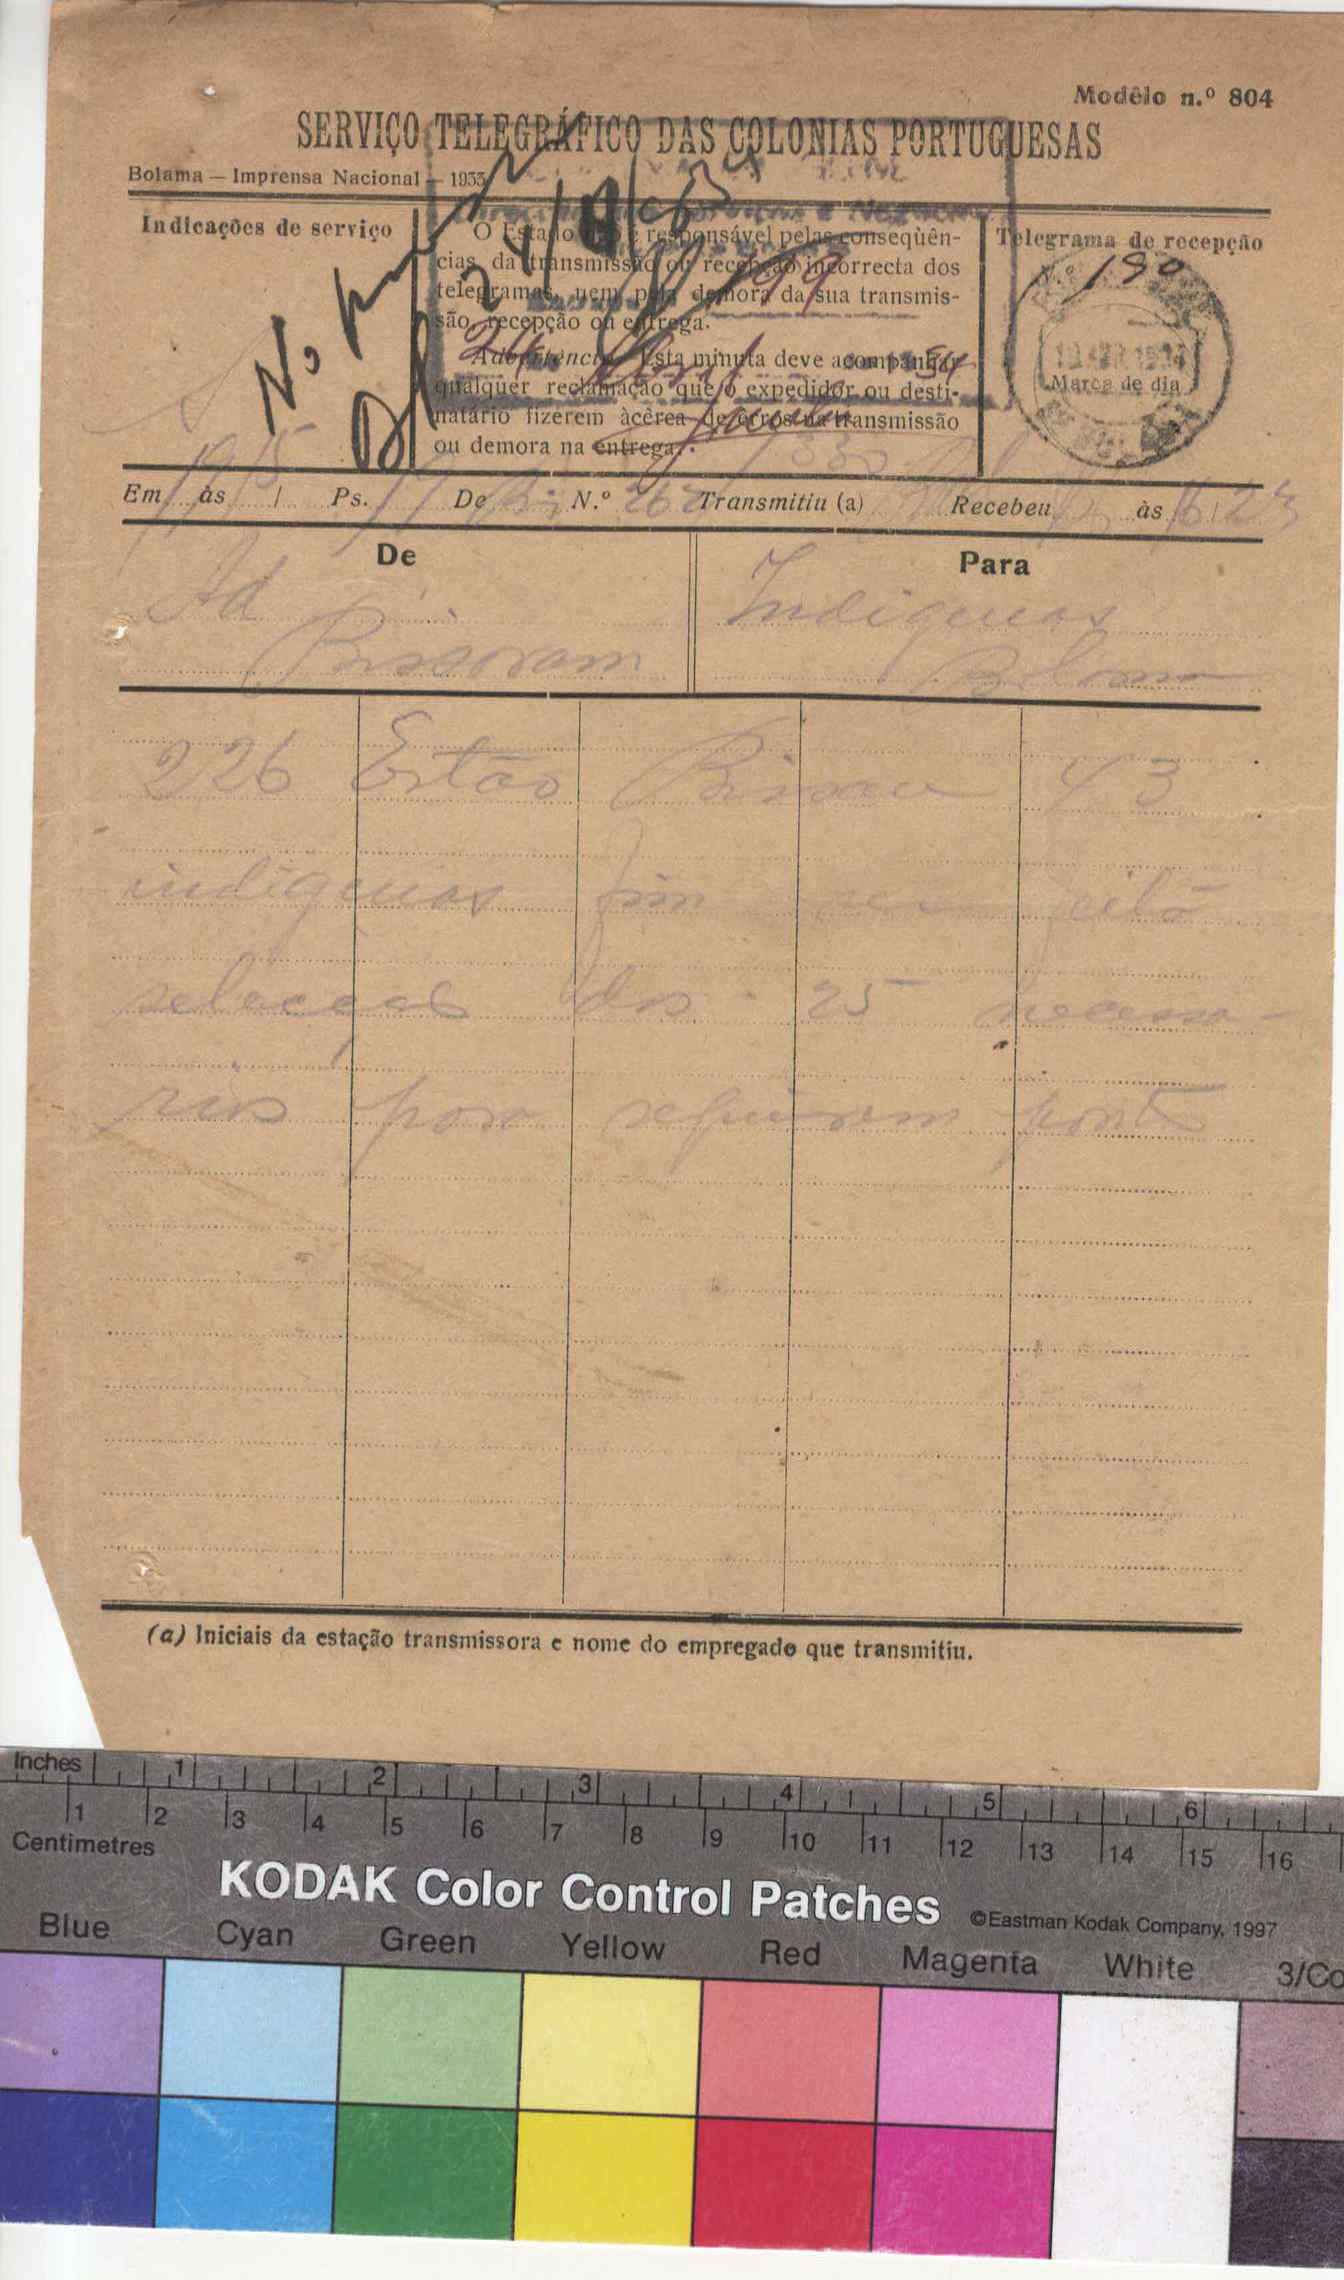 Modêlo n.º 804
SERVIÇO TELEGRÁFICO DAS COLONIAS PORTUGUESAS
Bolama — Imprensa Nacional — 1933
Indicações de serviço
O Estado não é responsável pelas conseqüên-
cias da transmissão ou recepção incorrecta dos
telegramas, nem pela demora da sua transmis-
são, recepção ou entrega.
Advertência. Esta minuta deve acompanhar
qualquer reclamação que o expedidor ou desti-
natário fizerem àcêrca de erros na transmissão
ou demora na entrega.
Telegrama de recepção
N.º 190
Marca de dia
199
24 Abril 34
Em 19 às 15 Ps. 17 De N.º 262 Transmitiu (a) Recebeu às 16 23
De
Para
Ad
Bissoram
Indigenas
Bolama
226 Estão Bissau 43
indigenas fim ser feita
selecção dos 25 necessa-
rios para seguirem porto
(a) Iniciais da estação transmissora e nome do empregado que transmitiu.
Inches 1 2 3 4 5 6
1 2 3 4 5 6 7 8 9 10 11 12 13 14 15 16
Centimetres
KODAK Color Control Patches
©Eastman Kodak Company, 1997
Blue Cyan Green Yellow Red Magenta White 3/Co